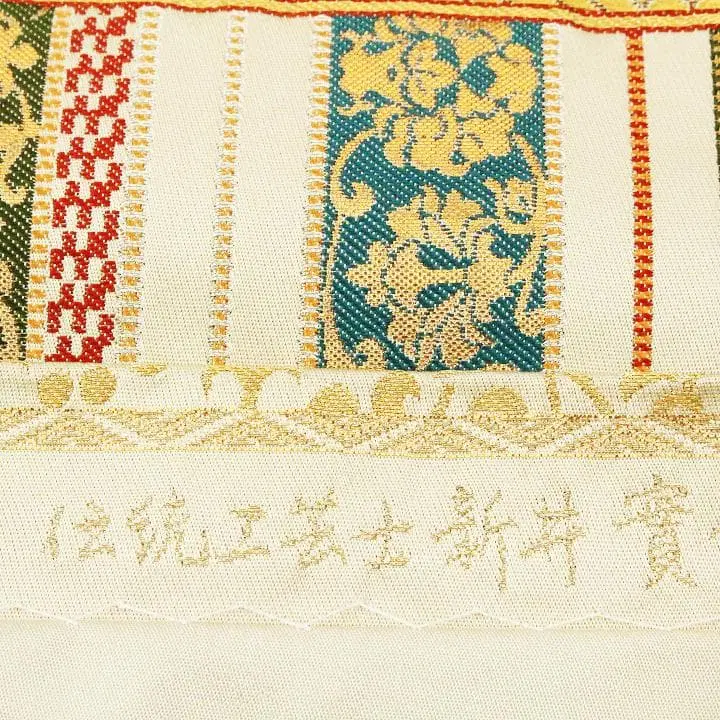 伝統工芸士新井實